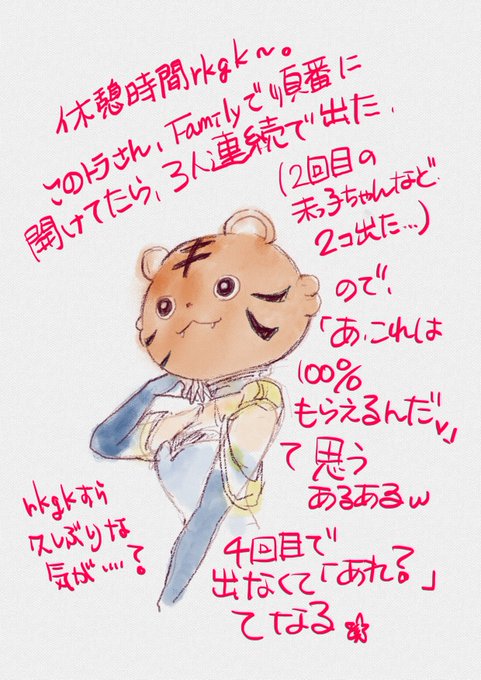 休憩時間rkgk～。
このトラさん、Familyで順番に
開けてたら、3人連続で出た、
(2回目の
末っ子ちゃんなど
2コ出た…)
ので、
「あ、これは
100%
もらえるんだv」
て思う
あるあるw
4回目で
出なくて「あれ？」
てなる
rkgkすら
久しぶりな
気が....？